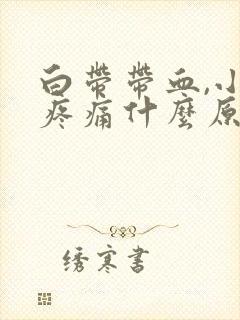 白帶帶血,小
疼痛什麼原
绣寒書